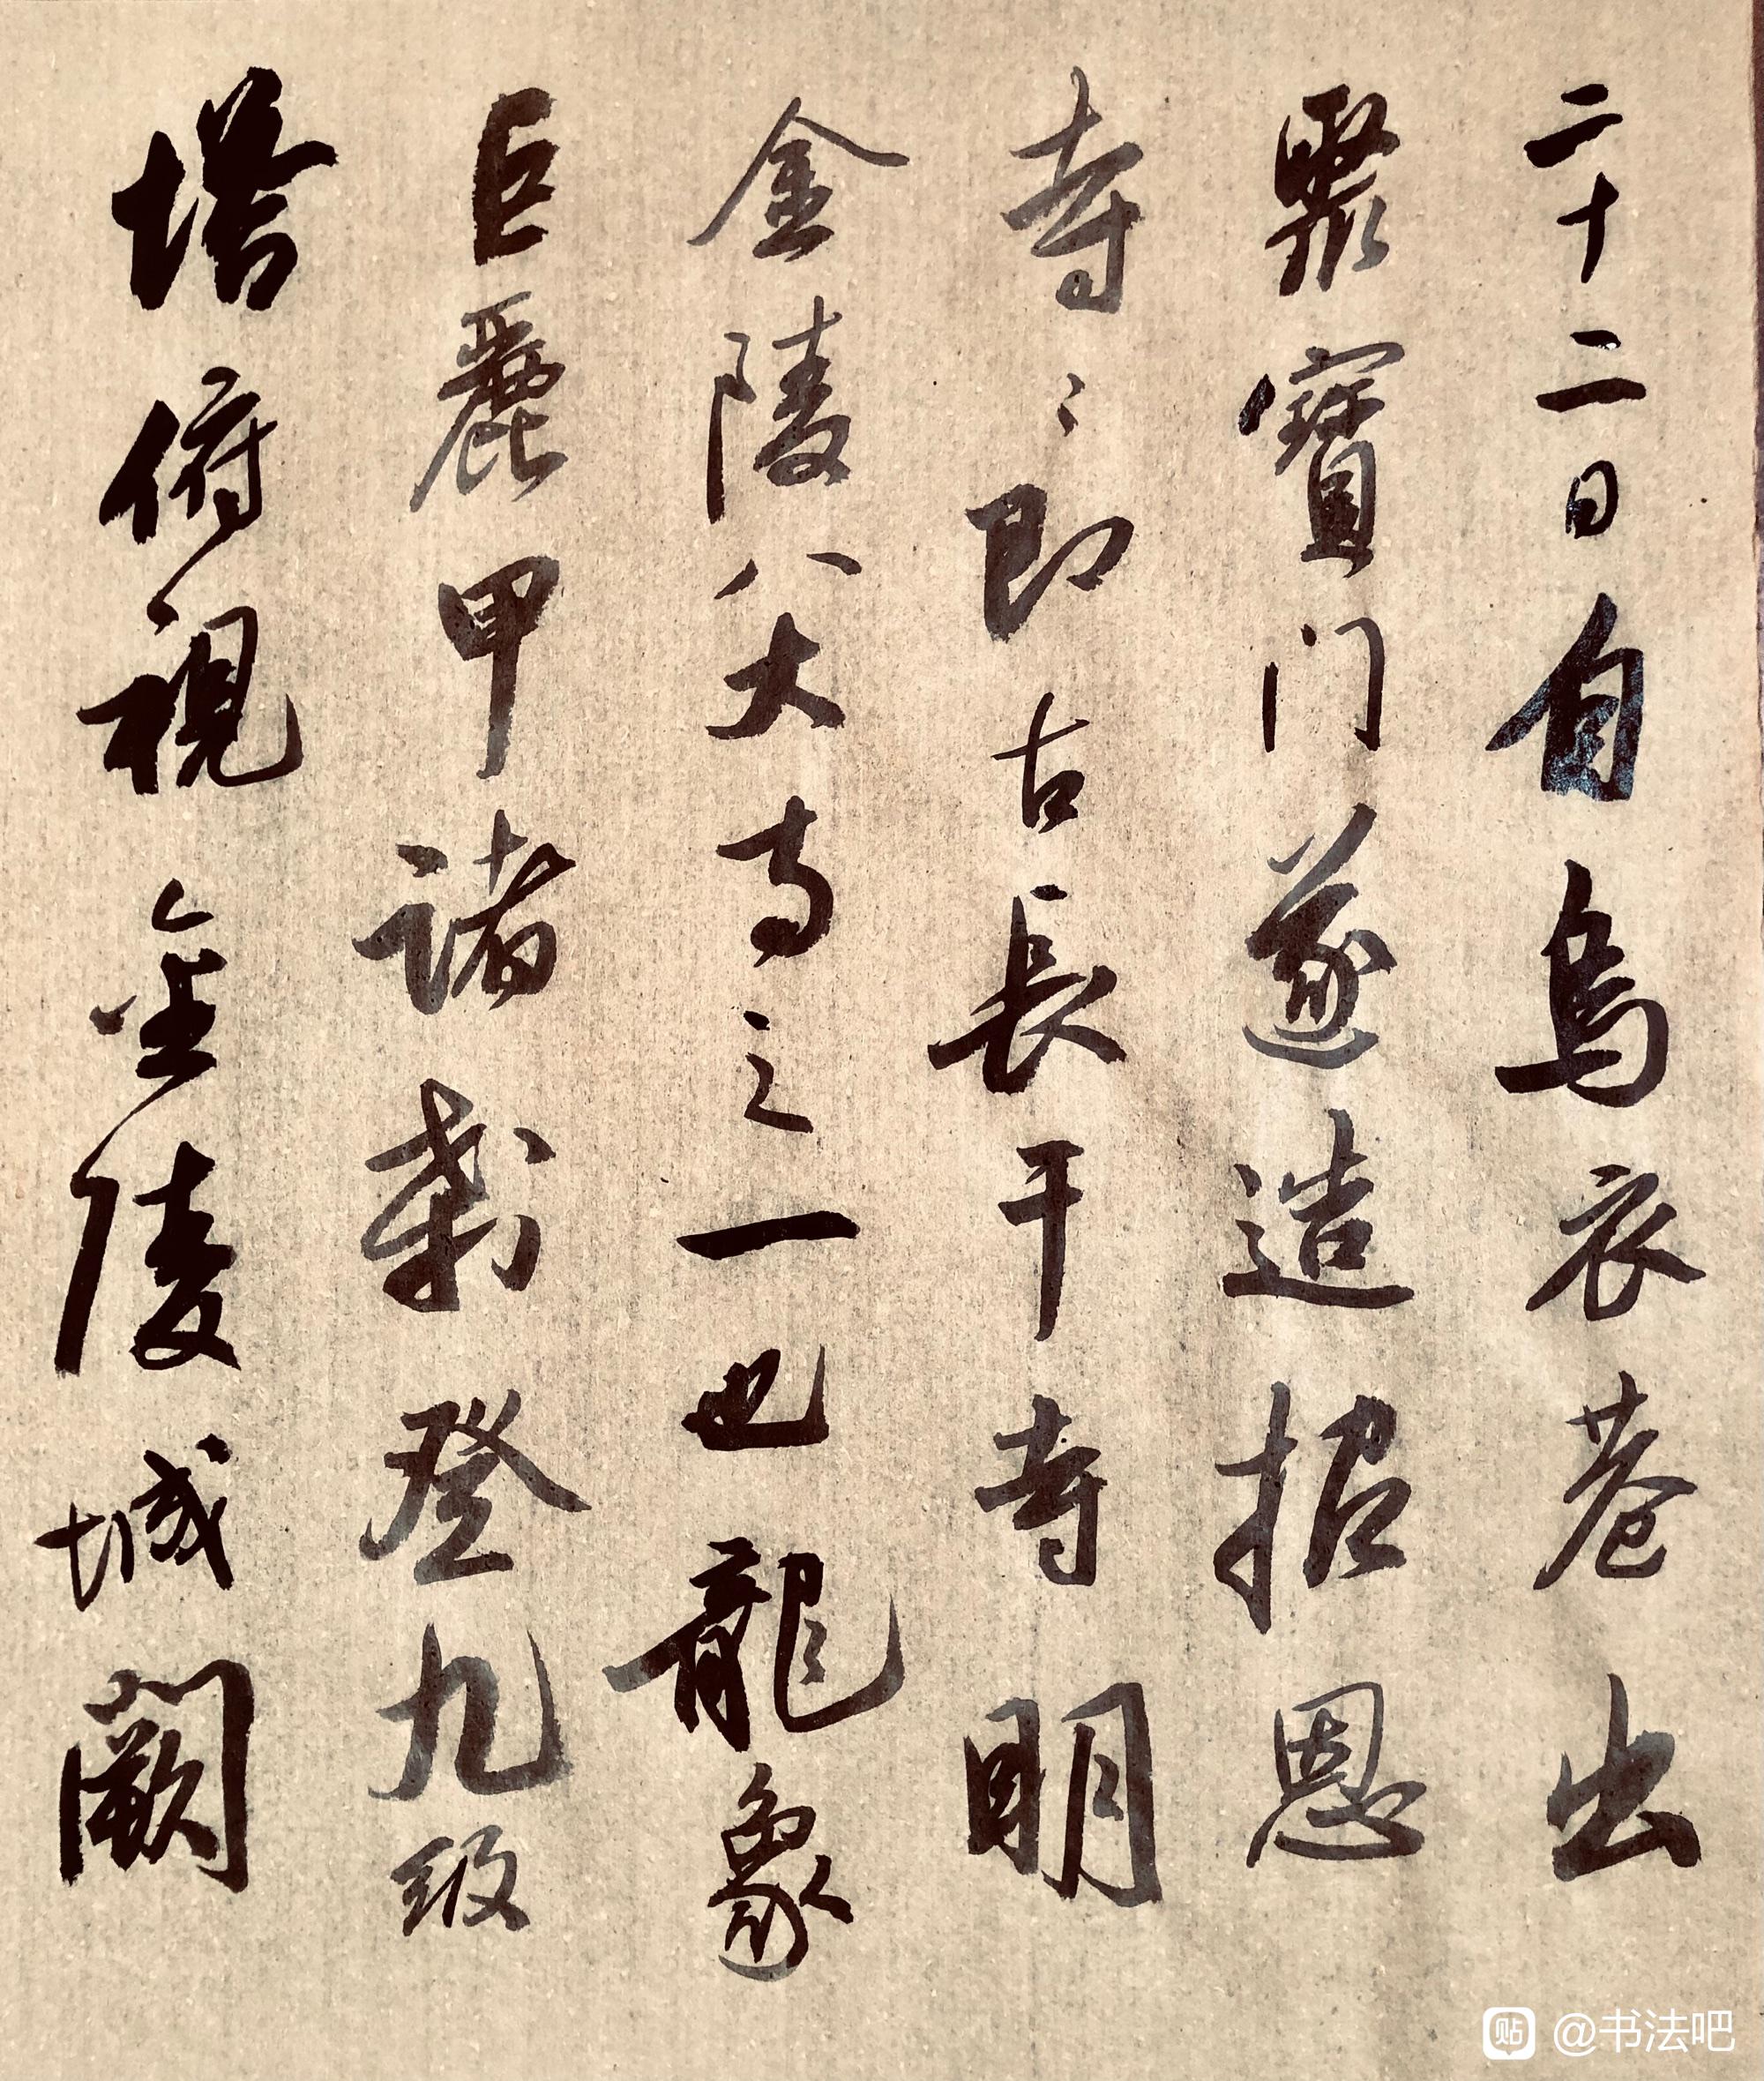 二十二日自烏衣巷出
聚寶门遂造招恩
寺〻即古長干寺明
金陵八大寺之一也龍象
巨麗甲諸刹登九级
塔俯視金陵城闕
贴 @书法吧